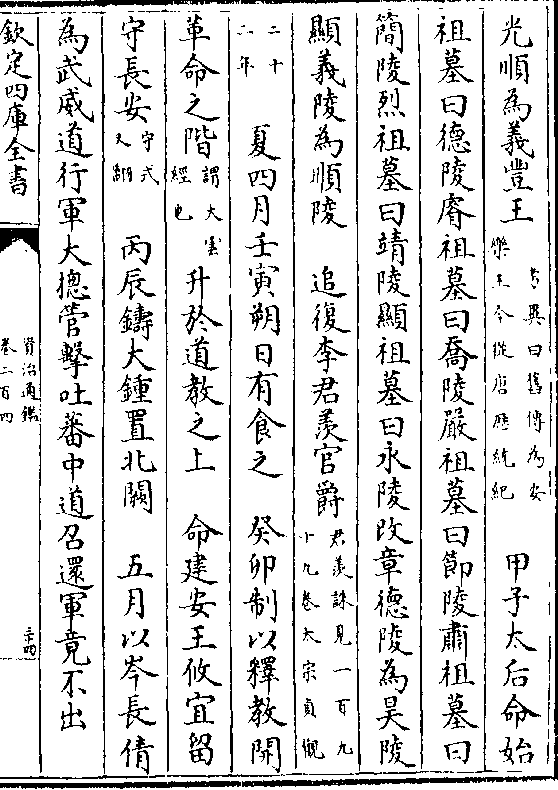 光順為義豐王考異曰舊傳為安樂王今從唐歴統紀　甲子太后命始
祖墓曰德陵睿祖墓曰喬陵嚴祖墓曰節陵肅祖墓曰
簡陵烈祖墓曰靖陵顯祖墓曰永陵改章德陵為昊陵
顯義陵為順陵　追復李君羨官爵君羨誅見一百九十九卷太宗貞觀
二十二年　夏四月壬寅朔日有食之　癸卯制以釋教開
革命之階謂大雲經也升於道教之上　命建安王攸宜留
守長安守式又翻　丙辰鑄大鍾置北闕　五月以岑長倩
為武威道行軍大揔管擊吐蕃中道召還軍竟不出
欽定四庫全書
資治通鑑
卷二百四